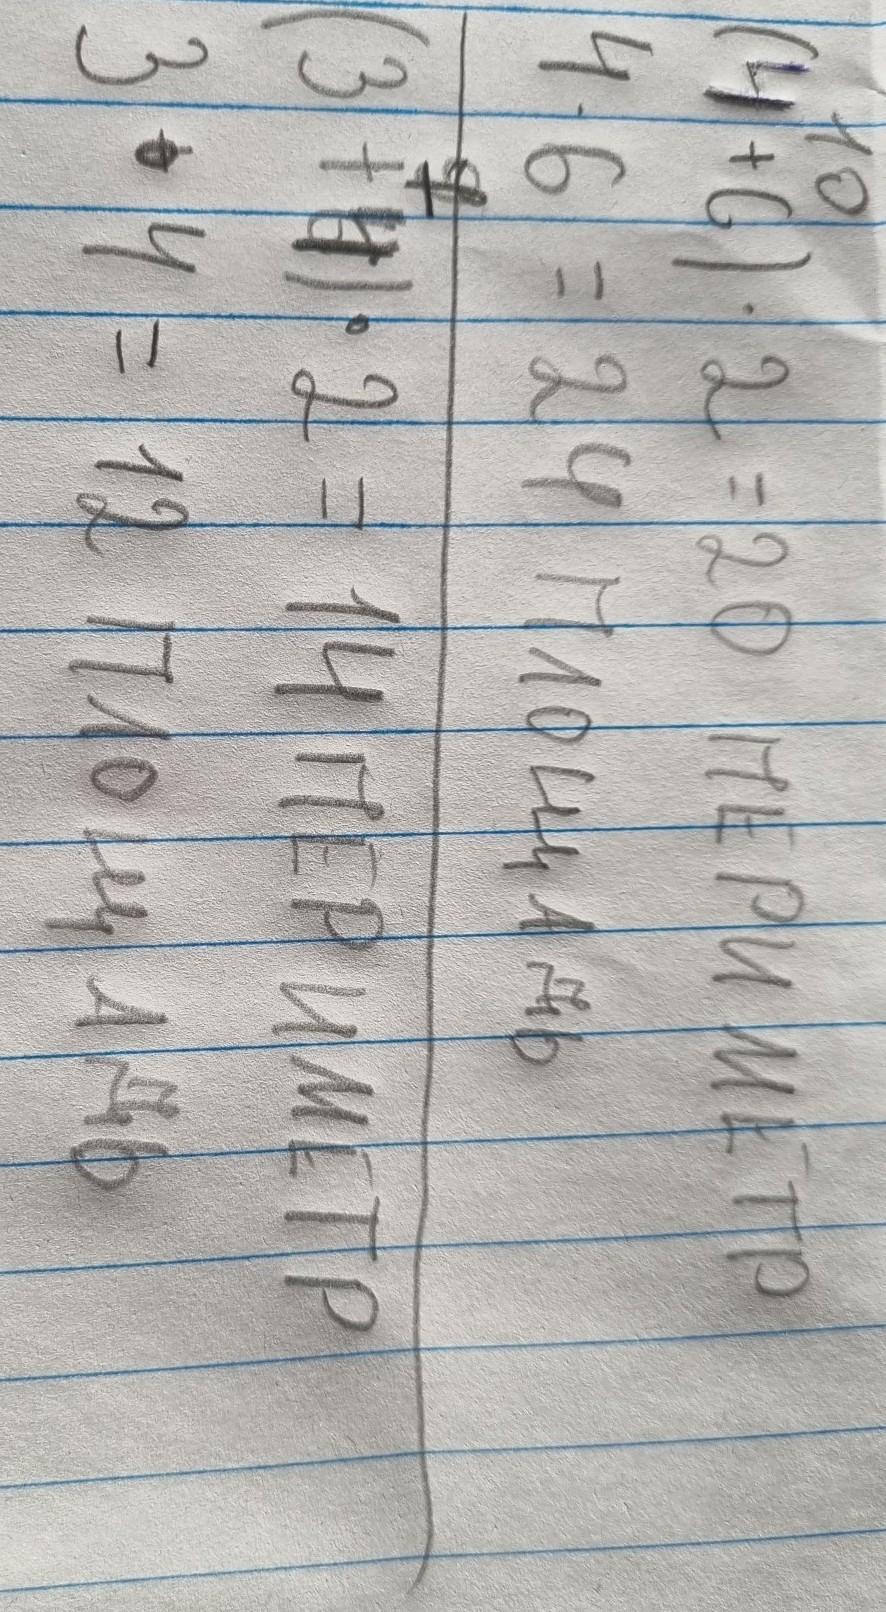 10
(4+6)·2=20 ПЕРИМЕТР
4·6=24 ПЛОЩАДЬ
7
(3+4)·2=14 ПЕРИМЕТР
3·4=12 ПЛОЩАДЬ